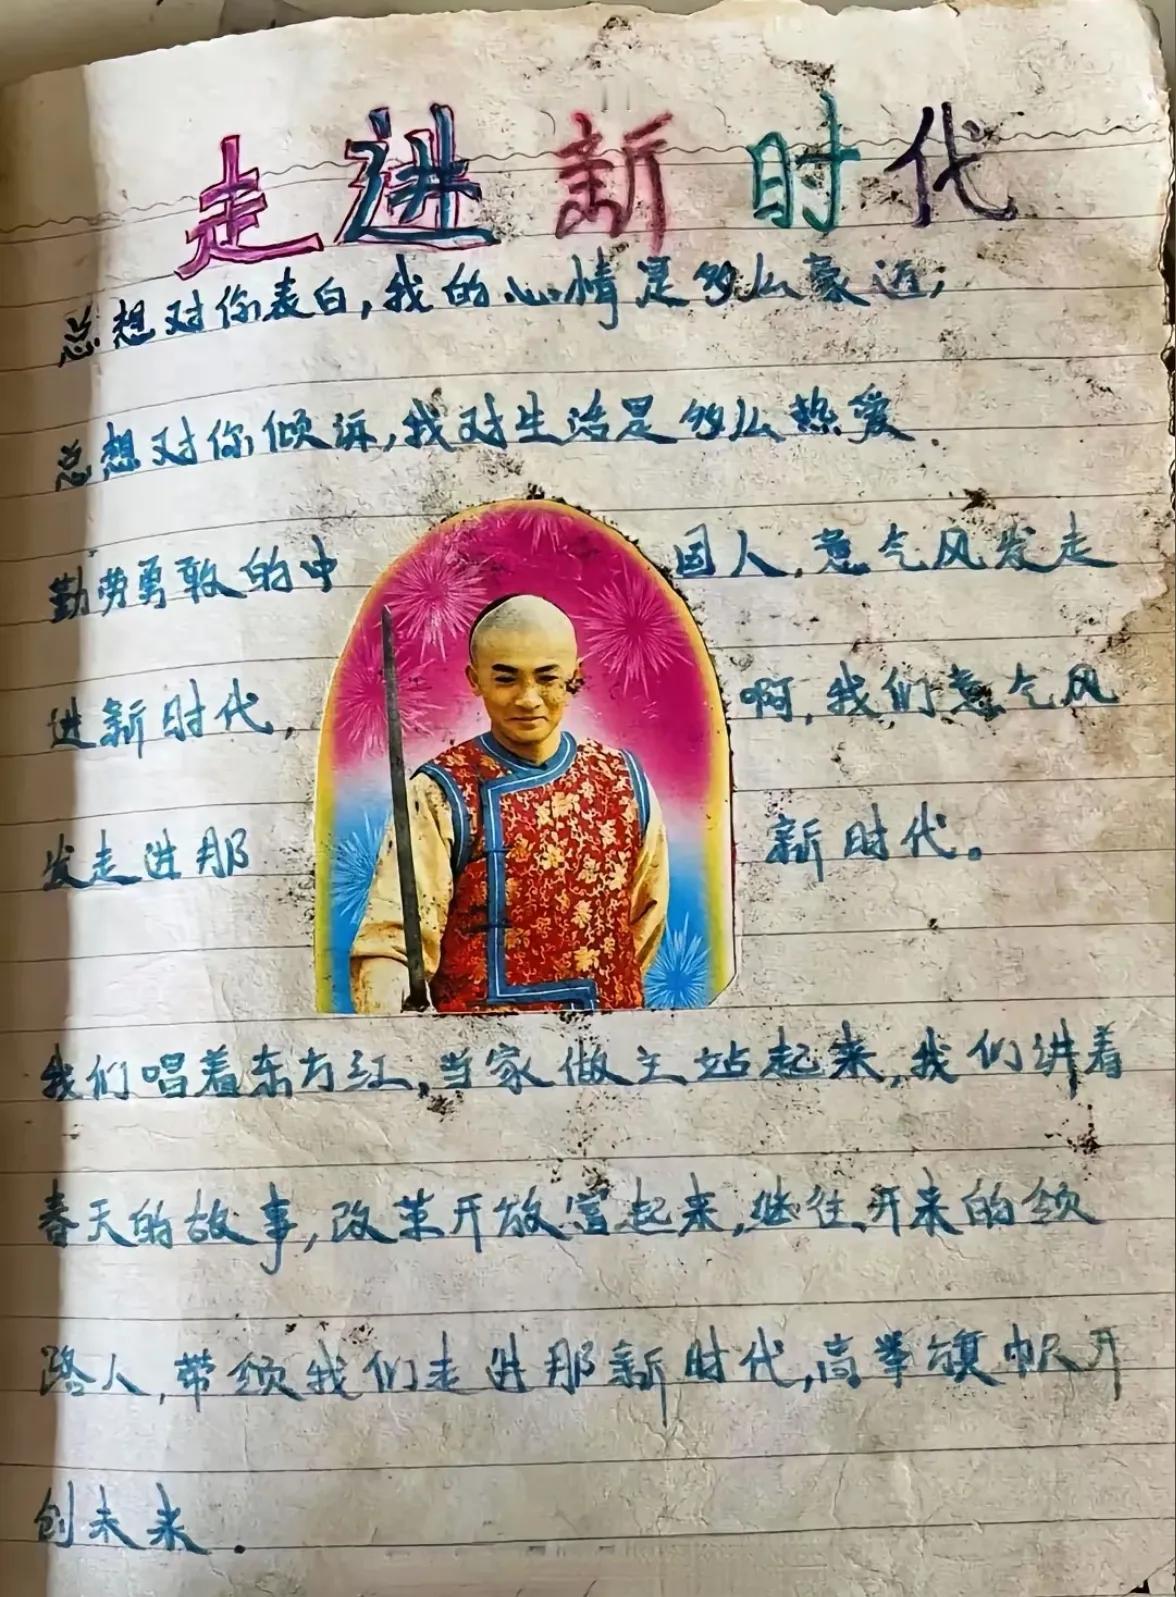 走进新时代
总想对你表白,我的心情是多么豪迈;
总想对你倾诉,我对生活是多么热爱.
勤劳勇敢的中国人,意气风发走
进新时代,啊,我们意气风
发走进那新时代。
我们唱着东方红,当家做主站起来,我们讲着
春天的故事,改革开放富起来,继往开来的领
路人,带领我们走进那新时代,高举旗帜开
创未来.